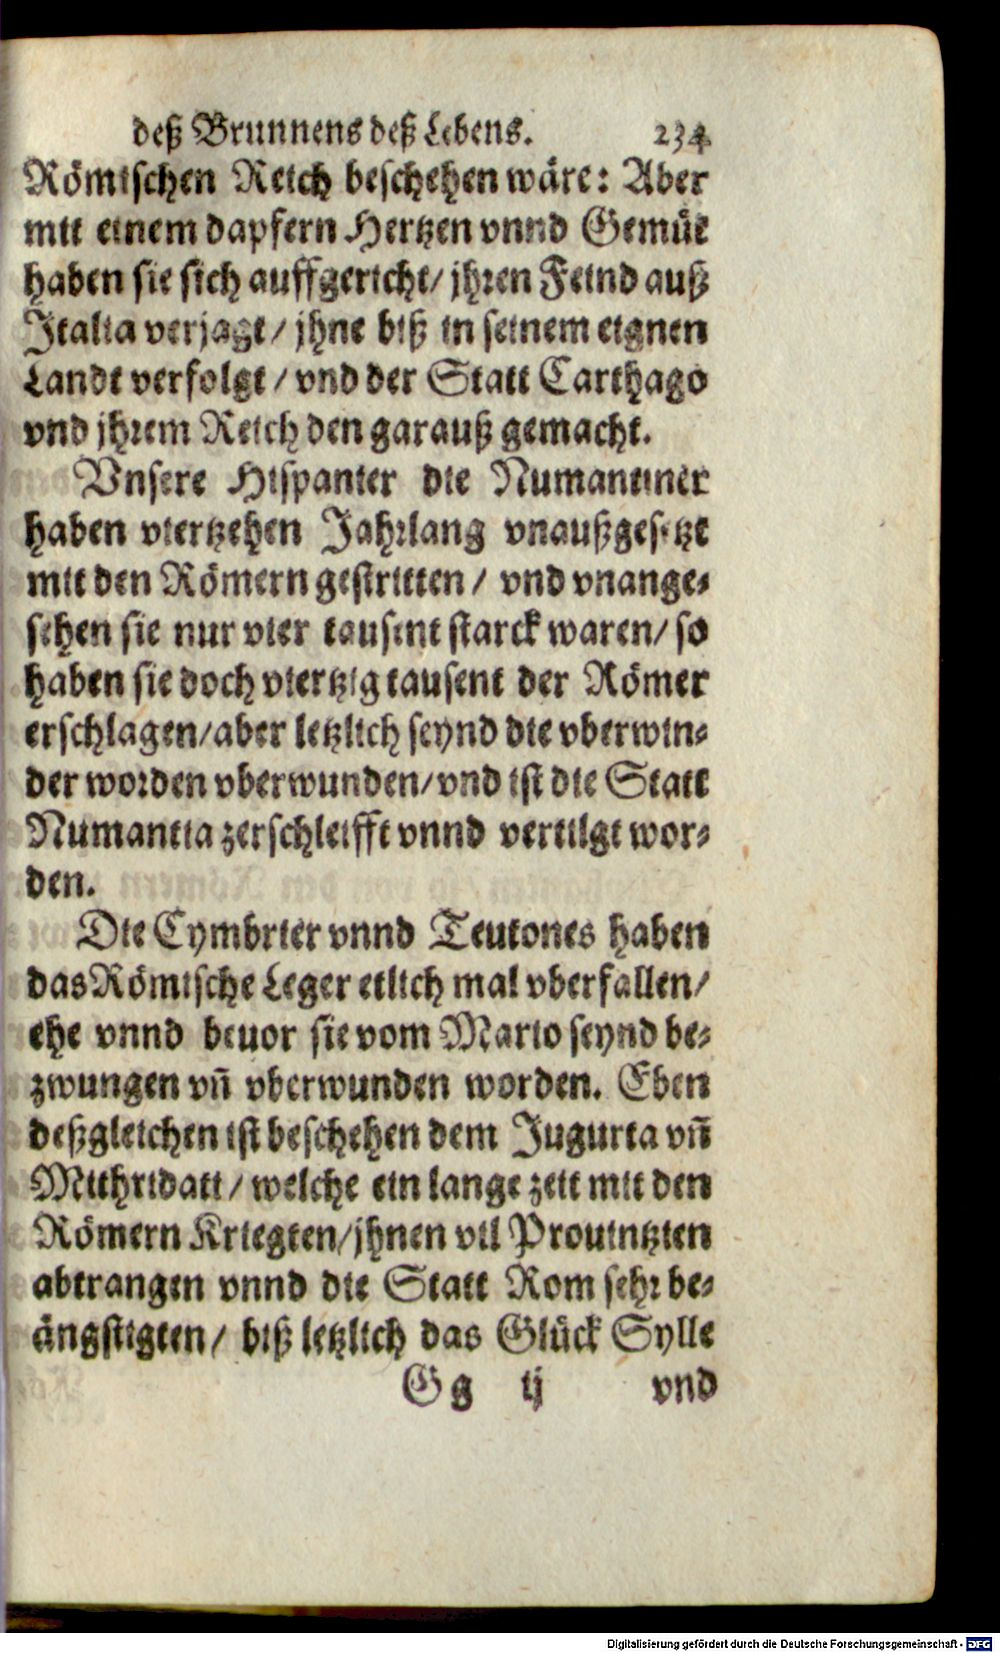 deß Brunnens deß Lebens. 234
Römischen Reich beschehen wäre: Aber
mit einem dapfern Hertzen vnnd Gemüt
haben sie sich auffgericht/ jhren Feind auß
Italia verjagt/ jhne biß in seinem eignen
Landt verfolgt/ vnd der Statt Carthago
vnd jhrem Reich den garauß gemacht.
Vnsere Hispanier die Numantiner
haben viertzehen Jahrlang vnaußgesetzt
mit den Römern gestritten/ vnd vnange-
sehen sie nur vier tausent starck waren/ so
haben sie doch viertzig tausent der Römer
erschlagen/ aber letzlich seynd die vberwin-
der worden vberwunden/ vnd ist die Statt
Numantia zerschleifft vnnd vertilgt wor-
den.
Die Cymbrier vnnd Teutones haben
das Römische Leger etlich mal vberfallen/
ehe vnnd beuor sie vom Mario seynd be-
zwungen vñ vberwunden worden. Eben
deßgleichen ist beschehen dem Jugurta vñ
Mithridati/ welche ein lange zeit mit den
Römern Kriegten/ jhnen vil Prouintzien
abtrangen vnnd die Statt Rom sehr be-
ängstigten/ biß letzlich das Glück Sylle
Gg ij vnd
Digitalisierung gefördert durch die Deutsche Forschungsgemeinschaft - DFG